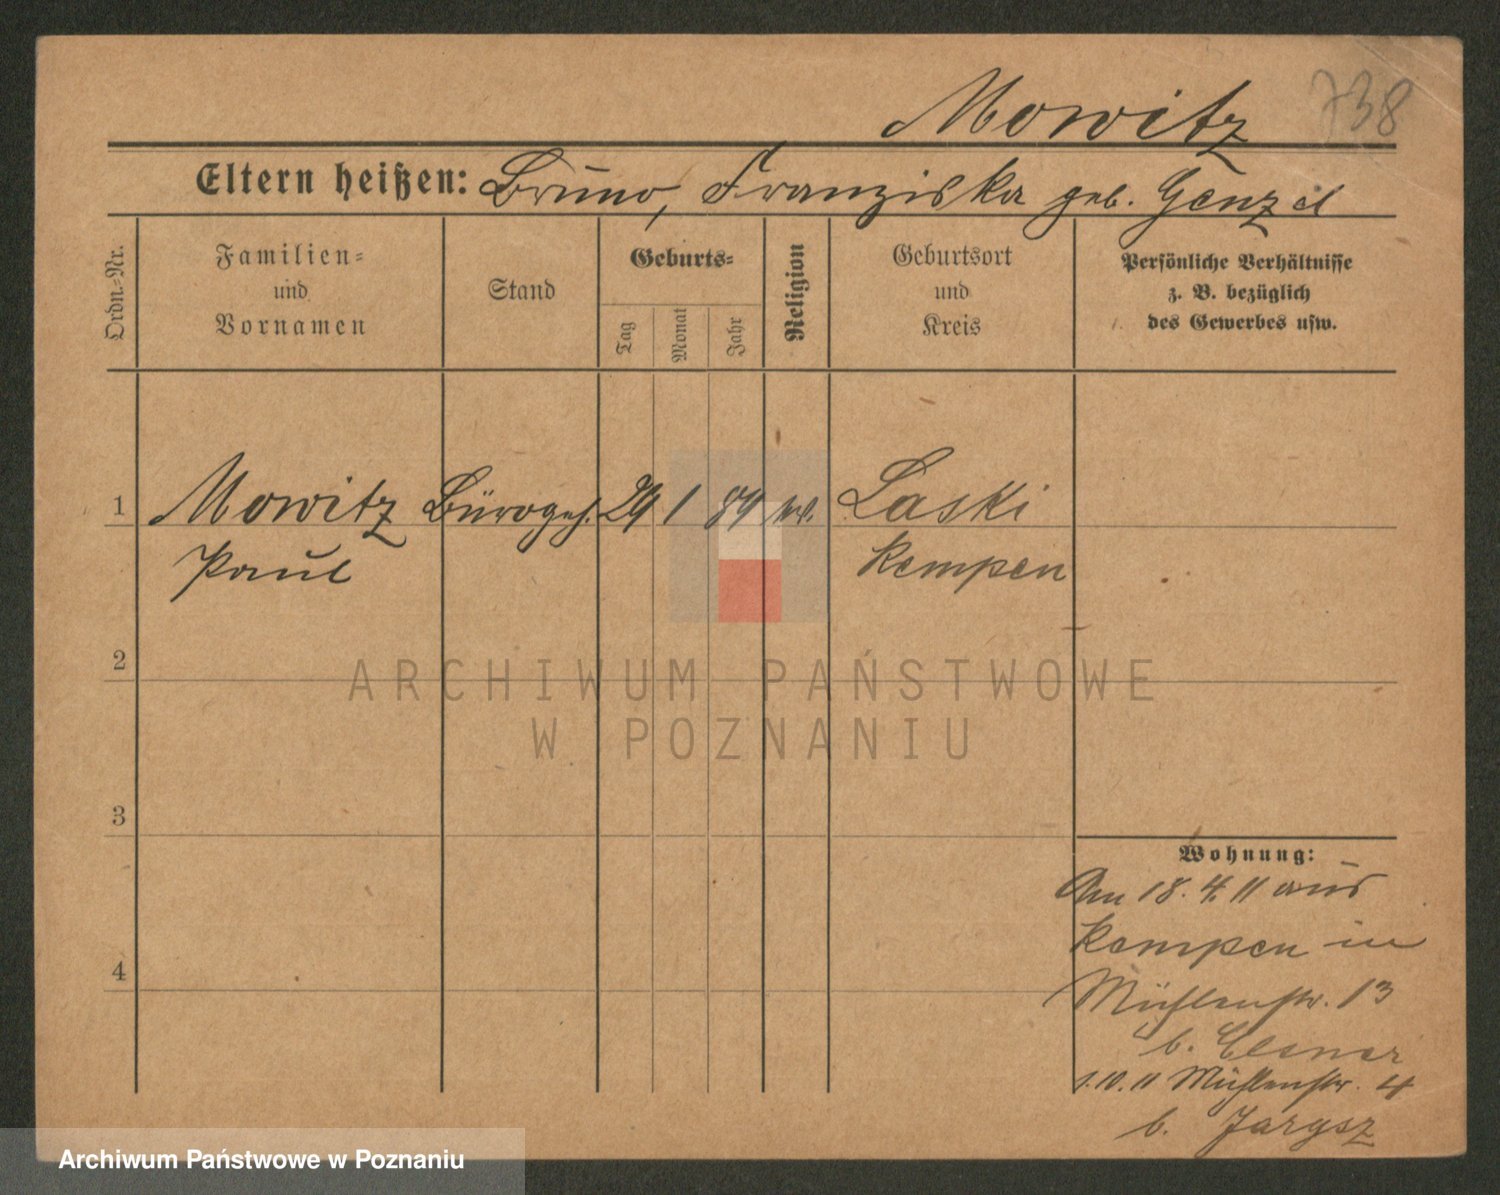 Mowitz 738
Eltern heißen: Bruno, Franziska geb. Genzel
Ordn.-Nr. Familien- und Vornamen Stand Geburts- Tag Monat Jahr Religion Geburtsort und Kreis Persönliche Verhältnisse z. B. bezüglich des Gewerbes usw.
1 Mowitz Bürogeh. 29 1 89 Laski
Paul Kempen
2
ARCHIWUM PAŃSTWOWE
W POZNANIU
3
Wohnung:
Am 18. 4. 11 aus
Kempen in
4
Mühlenstr. 13
b. Elsner
1.10.11 Mühlenstr. 4
b. Jargsz
Archiwum Państwowe w Poznaniu